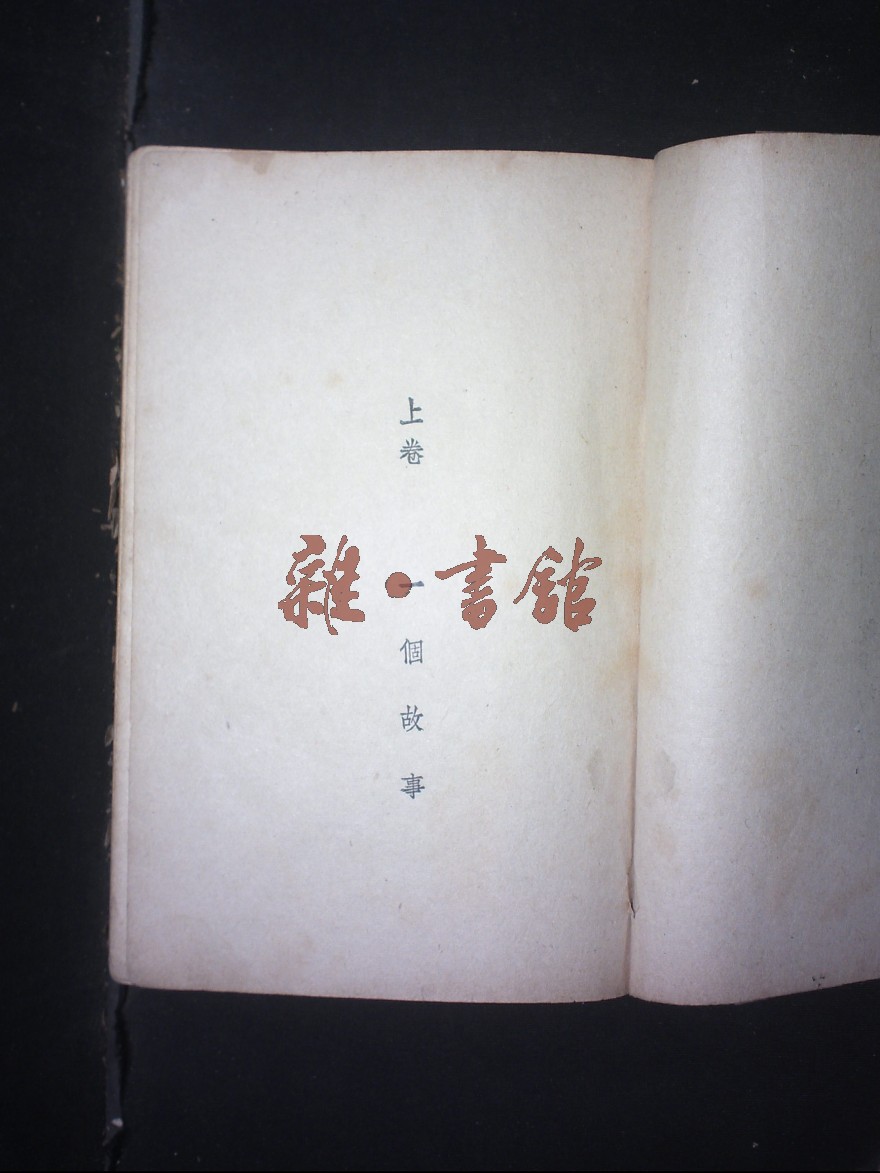 上卷 一個故事
雜·書館